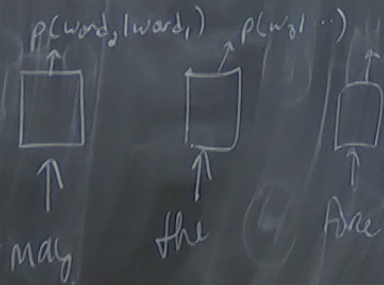 p(word₂|word₁) p(w₃|...)
May the force